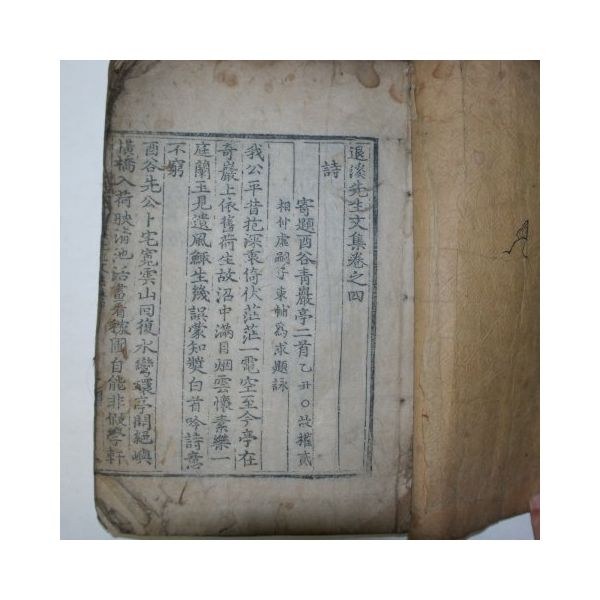 退溪先生文集卷之四
詩
寄題酉谷青巖亭二首乙丑○故權貳
相仲虛嗣子東輔爲求題詠
我公平昔抱深衷倚伏茫茫一電空至今亭在
奇巖上依舊荷生故沼中滿目烟雲懷素樂一
庭蘭玉見遺風鯫生幾誤蒙知奬白首吟詩意
不窮
酉谷先公卜宅寬雲山回復水彎環亭開絕嶼
橫橋入荷映淸池活畫看稼圃自能非假學軒